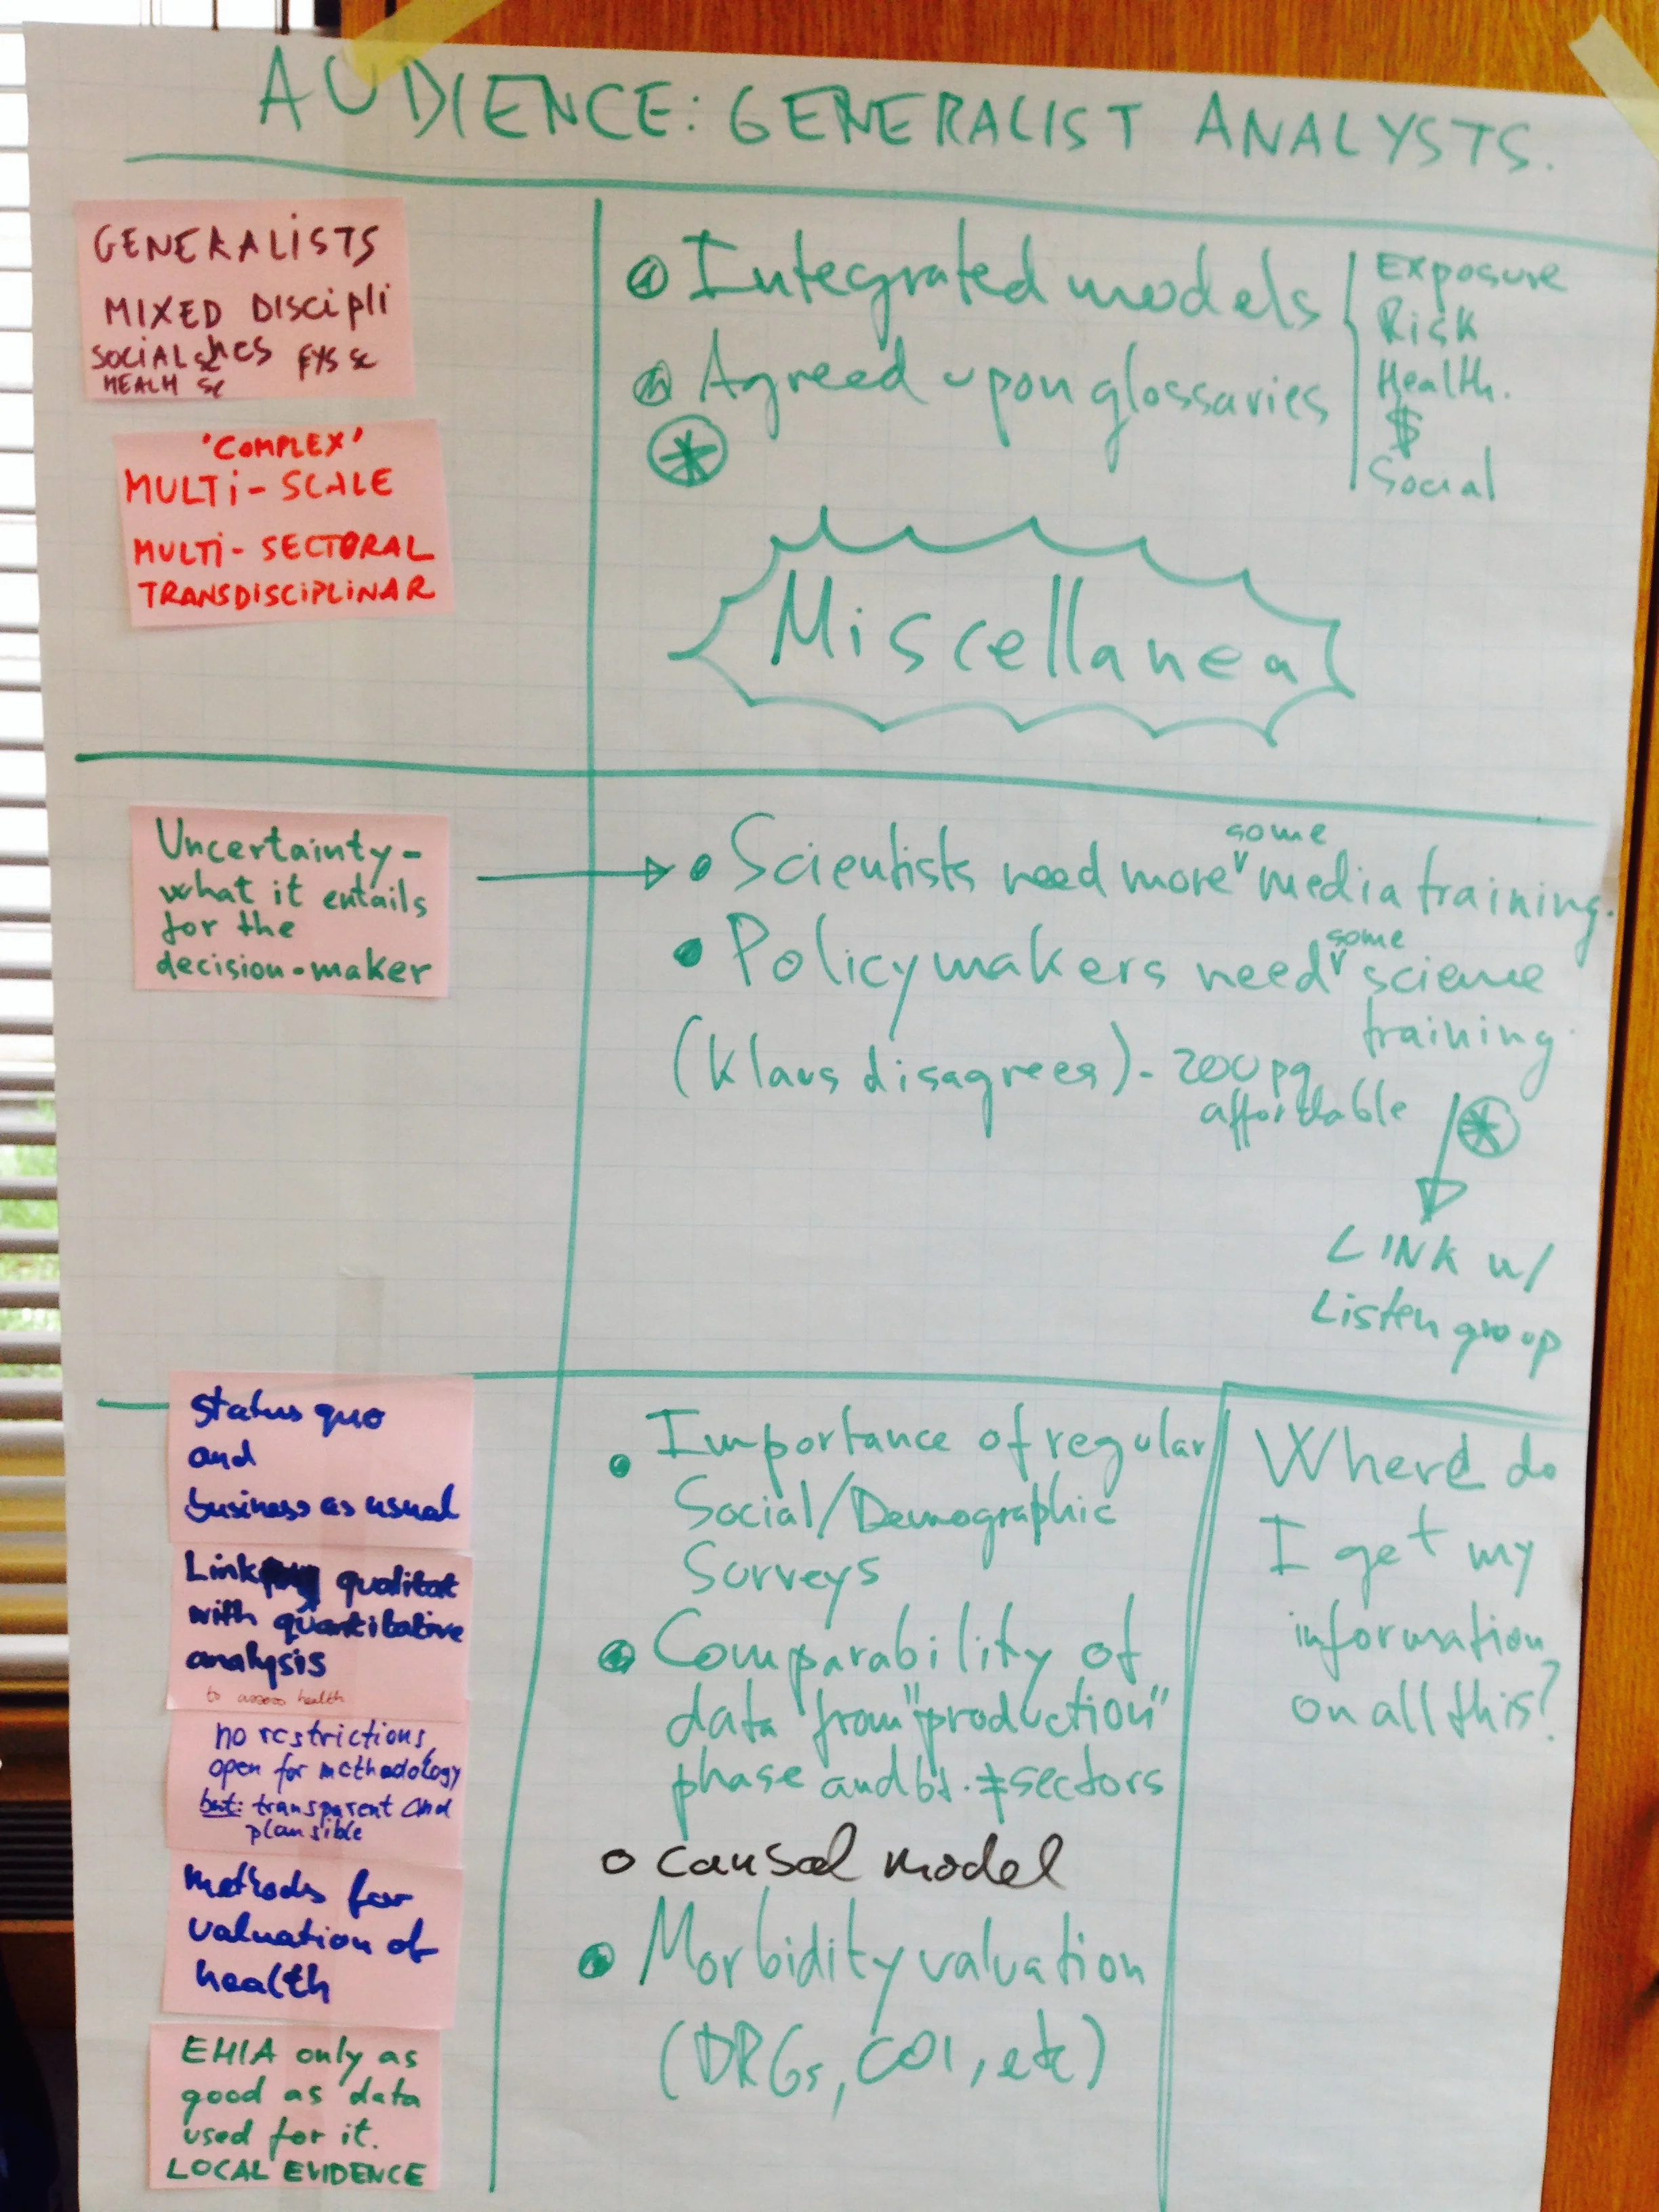 AUDIENCE: GENERALIST ANALYSTS.
GENERALISTS
MIXED DISCIPLI
SOCIAL sc NCS FYS sc
HEALH sc
'COMPLEX'
MULTi-SCALE
MULTi-SECTORAL
TRANSDISCIPLINAR
Integrated models
Agreed upon glossaries
Exposure
Risk
Health.
$
Social
Miscellanea
Uncertainty-
what it entails
for the
decision-maker
some
Scientists need more media training.
some
Policymakers need science
training.
(Klaus disagrees) - 200 pg
affordable
LINK w/
Listen group
Status quo
and
business as usual
Link qualitat
with quantitative
analysis
to assess health
no restrictions,
open for methodology
but: transparent and
plausible
methods for
valuation of
health
EHIA only as
good as data
used for it.
LOCAL EVIDENCE
Importance of regular
Social/Demographic
Surveys
Comparability of
data from "production"
phase and bt. ≠ sectors
o causal model
Morbidity valuation
(DRGs, COI, etc)
Where do
I get my
information
on all this?